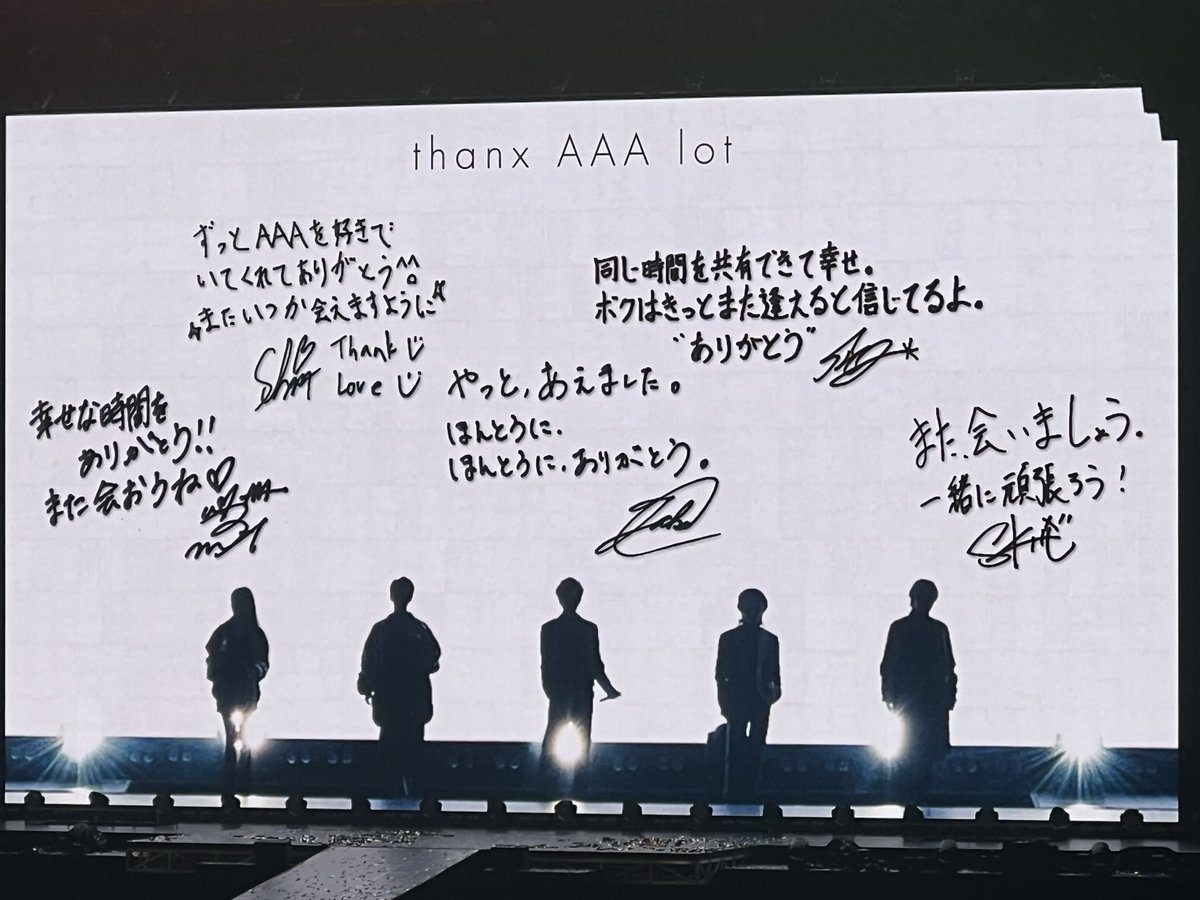 thanx AAA lot
ずっとAAAを好きで
いてくれてありがとう^^。
またいつか会えますように
Thank
Love
同じ時間を共有できて幸せ。
ボクはきっとまた逢えると信じてるよ。
"ありがとう"
幸せな時間を
ありがとう!!
また会おうね♡
やっと、あえました。
ほんとうに、
ほんとうに、ありがとう。
また、会いましょう。
一緒に頑張ろう!